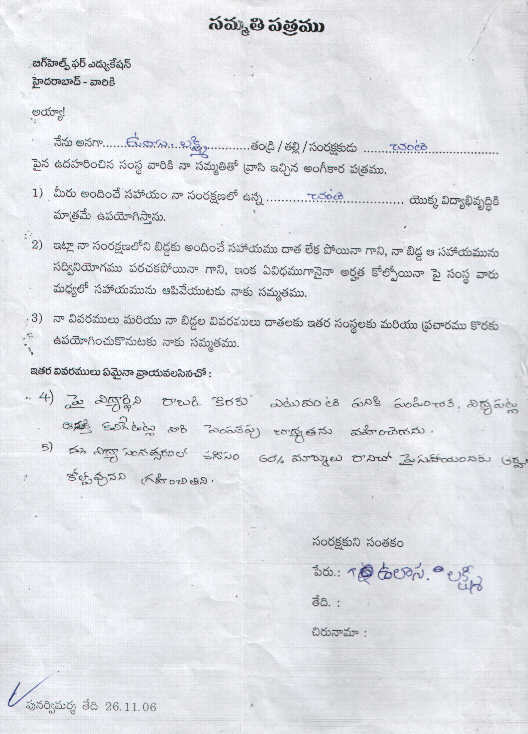 సమ్మతి పత్రము
బిగ్‌హెల్ప్ ఫర్ ఎడ్యుకేషన్
హైదరాబాద్ - వారికి
అయ్యా!
నేను అనగా.......ఉలాస. లక్ష్మి...........తండ్రి / తల్లి / సంరక్షకుడు .........................
పైన ఉదహరించిన సంస్థ వారికి నా సమ్మతితో వ్రాసి ఇచ్చిన అంగీకార పత్రము.
1) మీరు అందించే సహాయం నా సంరక్షణలో ఉన్న ............................ యొక్క విద్యాభివృద్ధికి
మాత్రమే ఉపయోగిస్తాను.
2) ఇట్లా నా సంరక్షణలోని బిడ్డకు అందించే సహాయము దాత లేక పోయినా గాని, నా బిడ్డ ఆ సహాయమును
సద్వినియోగము పరచకపోయినా గాని, ఇంక ఏవిధముగానైనా అర్హత కోల్పోయినా పై సంస్థ వారు
మధ్యలో సహాయమును ఆపివేయుటకు నాకు సమ్మతము.
3) నా వివరములు మరియు నా బిడ్డల వివరములు దాతలకు ఇతర సంస్థలకు మరియు ప్రచారము కొరకు
ఉపయోగించుకొనుటకు నాకు సమ్మతము.
ఇతర వివరములు ఏమైనా వ్రాయవలసినచో :
4) పై విద్యార్థిని రాబడి కొరకు ఎటువంటి పనికి పంపించక, విద్య పట్ల
బాధ్యతను వహించెదను.
5) ఈ విద్యా సంవత్సరంలో కనీసం 60% మార్కులు రానిచో పై సహాయమునకు
కోల్పోవునని గ్రహించితిని.
సంరక్షకుని సంతకం
పేరు : ఉలాస. లక్ష్మి
తేది. :
చిరునామా :
పునర్విమర్శ తేది 26.11.06